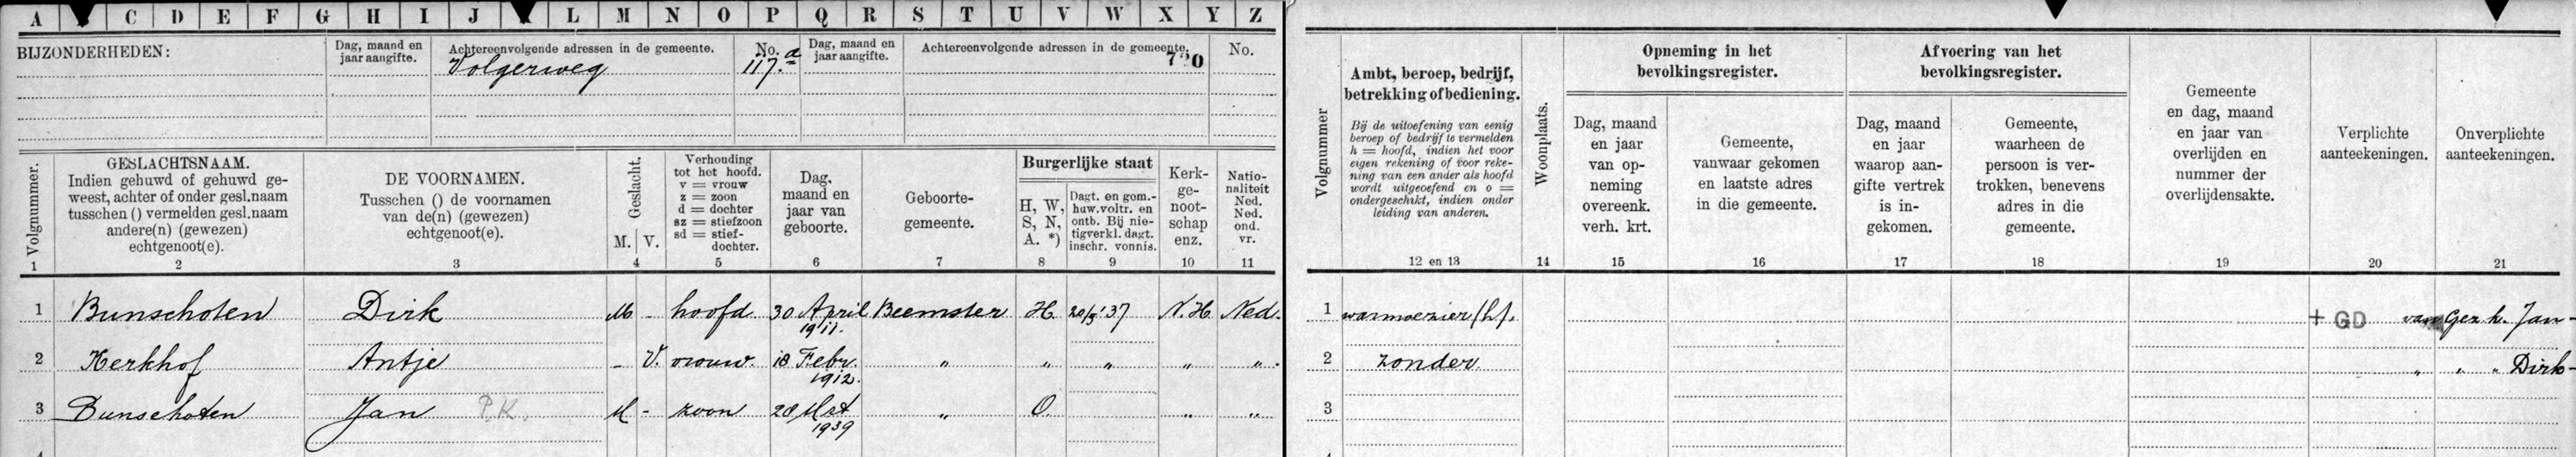 A C D E F G H I J L M N O P Q R S T U V W X Y Z
BIJZONDERHEDEN:
Dag, maand en jaar aangifte.
Achtereenvolgende adressen in de gemeente.
No.
Dag, maand en jaar aangifte.
Achtereenvolgende adressen in de gemeente.
No.
Volgerweg 117.a
Volgnummer.
1
GESLACHTSNAAM.
Indien gehuwd of gehuwd ge-
weest, achter of onder gesl.naam
tusschen () vermelden gesl.naam
andere(n) (gewezen)
echtgenoot(e).
2
DE VOORNAMEN.
Tusschen () de voornamen
van de(n) (gewezen)
echtgenoot(e).
3
Geslacht.
M. V.
4
Verhouding
tot het hoofd.
v = vrouw
z = zoon
d = dochter
sz = stiefzoon
sd = stief-
dochter.
5
Dag,
maand en
jaar van
geboorte.
6
Geboorte-
gemeente.
7
Burgerlijke staat
H, W,
S, N,
A. *)
8
Dagt. en gem.-
huw.voltr. en
ontb. Bij nie-
tigverkl. dagt.
inschr. vonnis.
9
Kerk-
ge-
noot-
schap
enz.
10
Natio-
naliteit
Ned.
Ned.
ond.
vr.
11
Volgnummer
Ambt, beroep, bedrijf,
betrekking of bediening.
Bij de uitoefening van eenig
beroep of bedrijf te vermelden
h = hoofd, indien het voor
eigen rekening of voor reke-
ning van een ander als hoofd
wordt uitgeoefend en o =
ondergeschikt, indien onder
leiding van anderen.
12 en 13
Woonplaats.
14
Opneming in het
bevolkingsregister.
Dag, maand
en jaar
van op-
neming
overeenk.
verh. krt.
15
Gemeente,
vanwaar gekomen
en laatste adres
in die gemeente.
16
Afvoering van het
bevolkingsregister.
Dag, maand
en jaar
waarop aan-
gifte vertrek
is in-
gekomen.
17
Gemeente,
waarheen de
persoon is ver-
trokken, benevens
adres in die
gemeente.
18
Gemeente
en dag, maand
en jaar van
overlijden en
nummer der
overlijdensakte.
19
Verplichte
aanteekeningen.
20
Onverplichte
aanteekeningen.
21
1 Bunschoten Dirk M - hoofd 30 April 1911. Beemster H. 20/5 '37 N.H. Ned. 1 warmoezier (h). + GD van Gez. k. Jan-
2 Kerkhof Antje - V. vrouw. 18 Febr. 1912. " " " " " 2 zonder. " " " Dirk-
3 Bunschoten Jan P.K. M - zoon 28 Mrt 1939 " O. " " 3